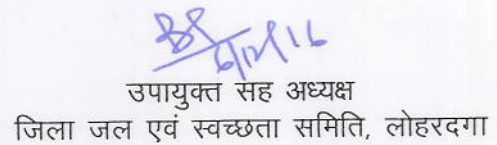 6/12/16
उपायुक्त सह अध्यक्ष
जिला जल एवं स्वच्छता समिति, लोहरदगा